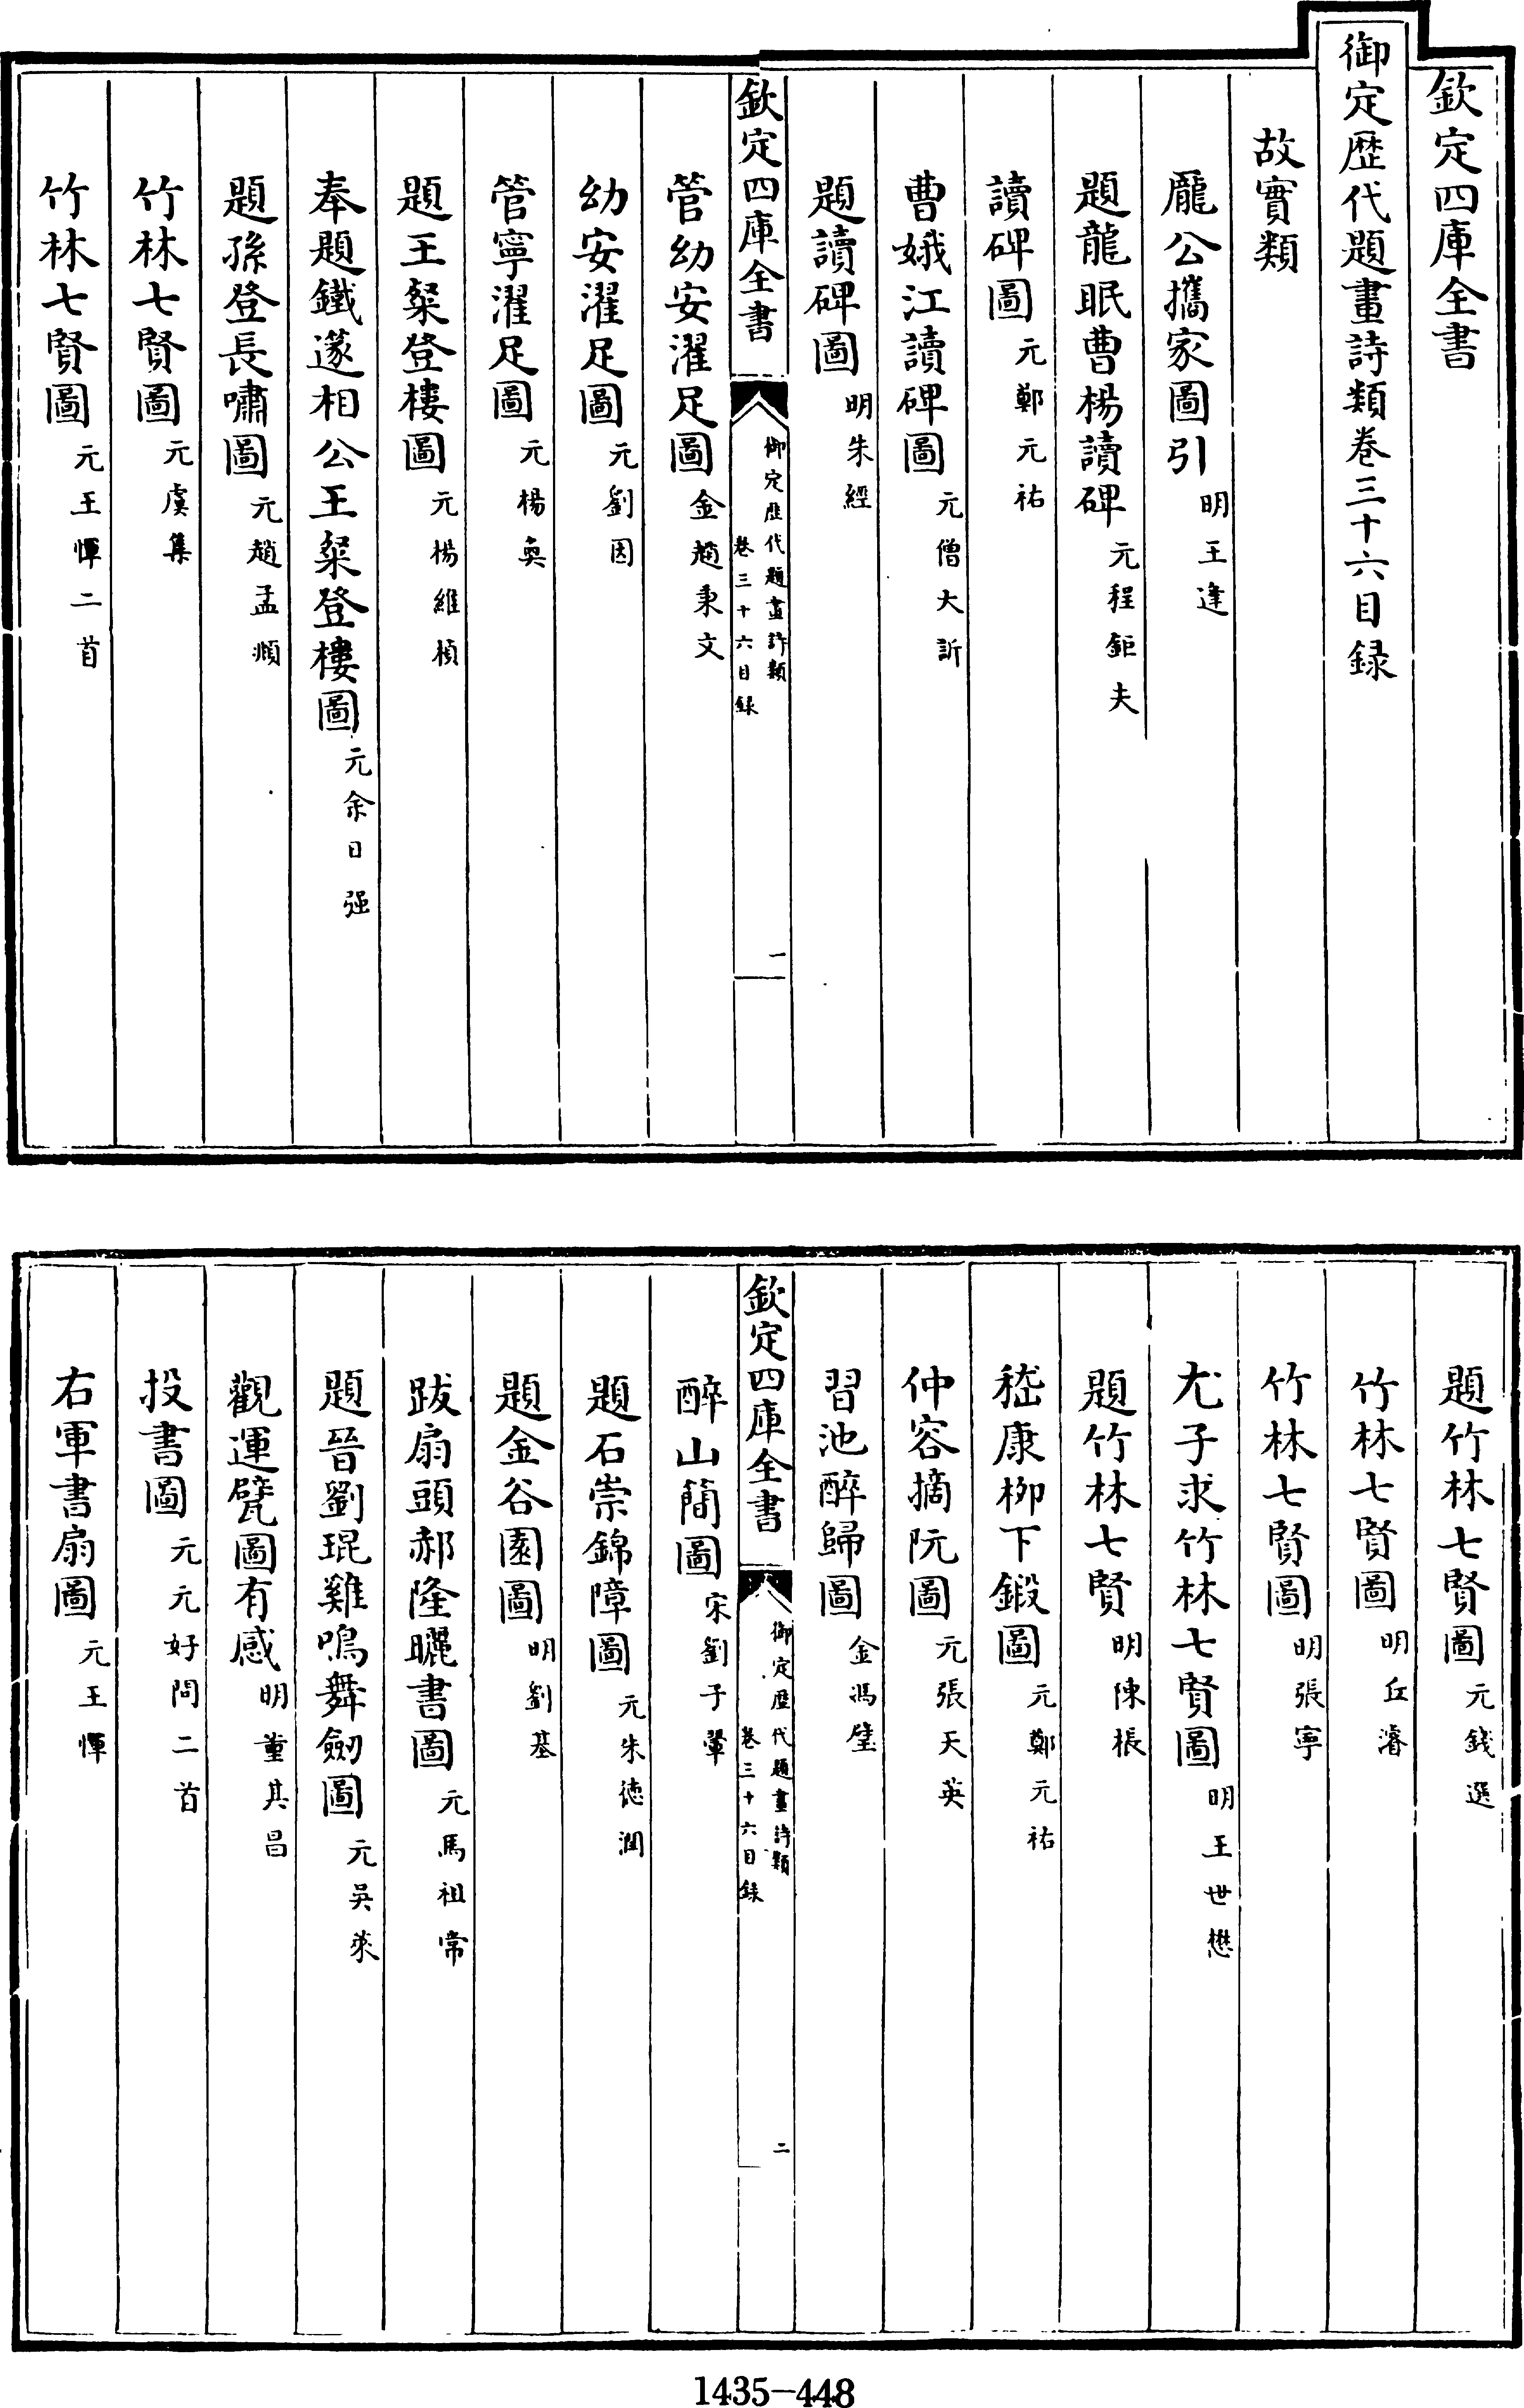 欽定四庫全書
御定歴代題畫詩類卷三十六目録
故實類
龎公攜家圖引 明王逢
題龍眠曹楊讀碑 元程鉅夫
讀碑圖 元鄭元祐
曹娥江讀碑圖 元僧大訢
題讀碑圖 明朱經
欽定四庫全書 御定歴代題畫詩類 卷三十六目録 一
管幼安濯足圖 金趙秉文
幼安濯足圖 元劉因
管寧濯足圖 元楊奐
題王粲登樓圖 元楊維楨
奉題鐵邃相公王粲登樓圖 元余日强
題孫登長嘯圖 元趙孟頫
竹林七賢圖 元虞集
竹林七賢圖 元王惲二首
題竹林七賢圖 元錢選
竹林七賢圖 明丘濬
竹林七賢圖 明張寧
尤子求竹林七賢圖 明王世懋
題竹林七賢 明陳根
嵇康柳下鍛圖 元鄭元祐
仲容摘阮圖 元張天英
習池醉歸圖 金馮璧
欽定四庫全書 御定歴代題畫詩類 卷三十六目録 二
醉山簡圖 宋劉子翬
題石崇錦障圖 元朱德潤
題金谷園圖 明劉基
跋扇頭郝隆曬書圖 元馬祖常
題晉劉琨雞鳴舞劒圖 元吳萊
觀運甓圖有感 明董其昌
投書圖 元元好問二首
右軍書扇圖 元王惲
1435-448